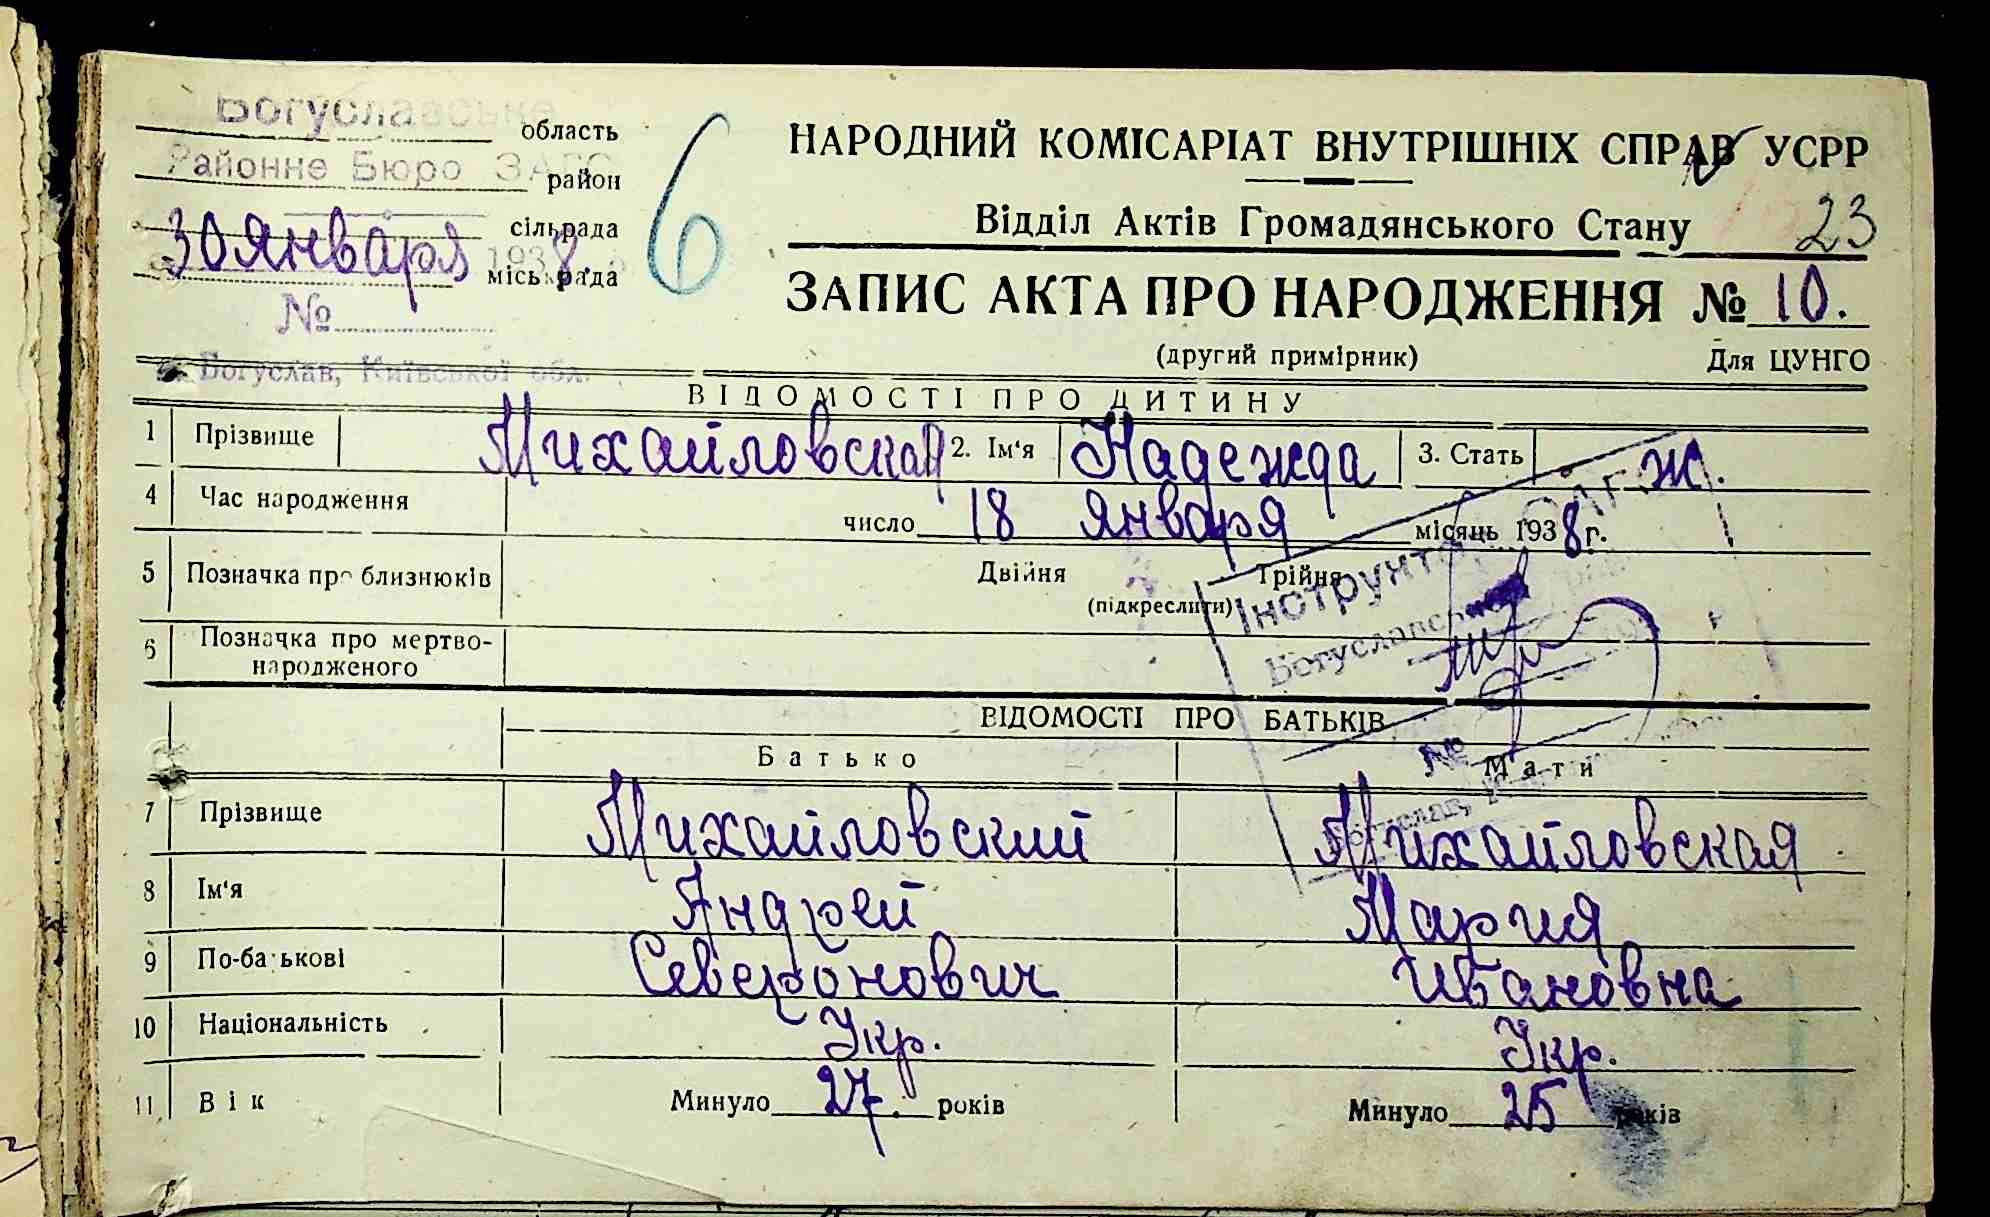 Богуславське
область
Районне Бюро ЗАГС
район
сільрада
30 Января 1938
міськрада
№
Богуслав, Київської обл.
6
НАРОДНИЙ КОМІСАРІАТ ВНУТРІШНІХ СПРАВ УСРР
Відділ Актів Громадянського Стану 23
ЗАПИС АКТА ПРО НАРОДЖЕННЯ № 10.
(другий примірник) Для ЦУНГО
ВІДОМОСТІ ПРО ДИТИНУ
1 Прізвище Михайловская 2. Ім'я Надежда 3. Стать Ж.
4 Час народження число 18 января місяць 1938 г.
5 Позначка про близнюків Двійня Трійня
(підкреслити)
6 Позначка про мертво-
народженого
Інструктор ЗАГС
Богуславського
№
Богуслав,
ВІДОМОСТІ ПРО БАТЬКІВ
Батько Мати
7 Прізвище Михайловский Михайловская
8 Ім'я Андрей Мария
9 По-батькові Северонович Ивановна
10 Національність Укр. Укр.
11 Вік Минуло 27. років Минуло 25 років